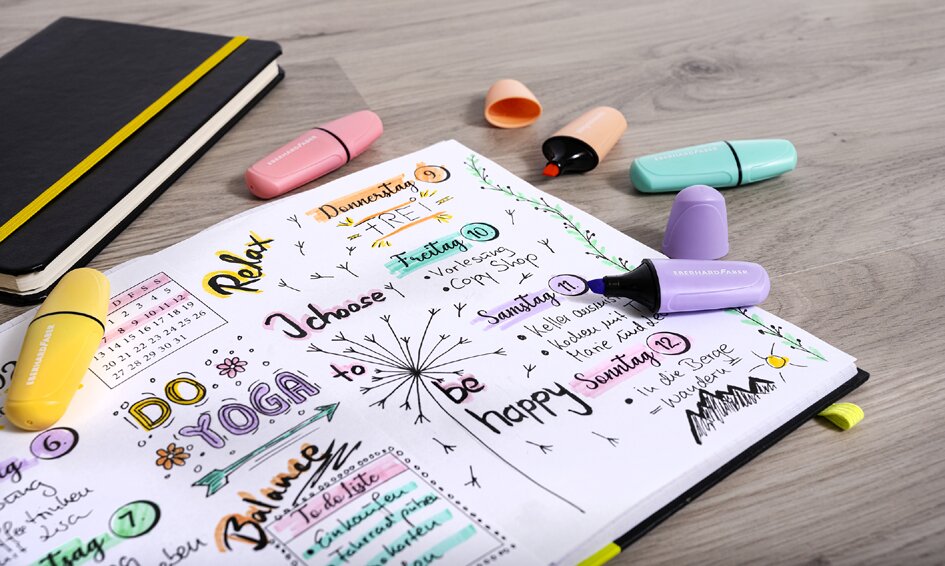 EBERHARD FABER
EBERHARD FABER
EBERHARD FABER
EBERHARD FABER
Relax
D F S S
1 2 3 4 5
8 9 10 11 12
13 14 15 16 17 18 19
20 21 22 23 24 25 26
27 28 29 30 31
DO
YOGA
Balance
6
7
To do Liste
• Einkaufen
Fahrrad putzen
I choose
to
be
happy
Donnerstag 9
FREI
Freitag 10
• Vorlesung
• Copy Shop
Samstag 11
• Keller
• Kochen mit
Marie und
Sonntag 12
• in die Berge
= Wandern
Lisa